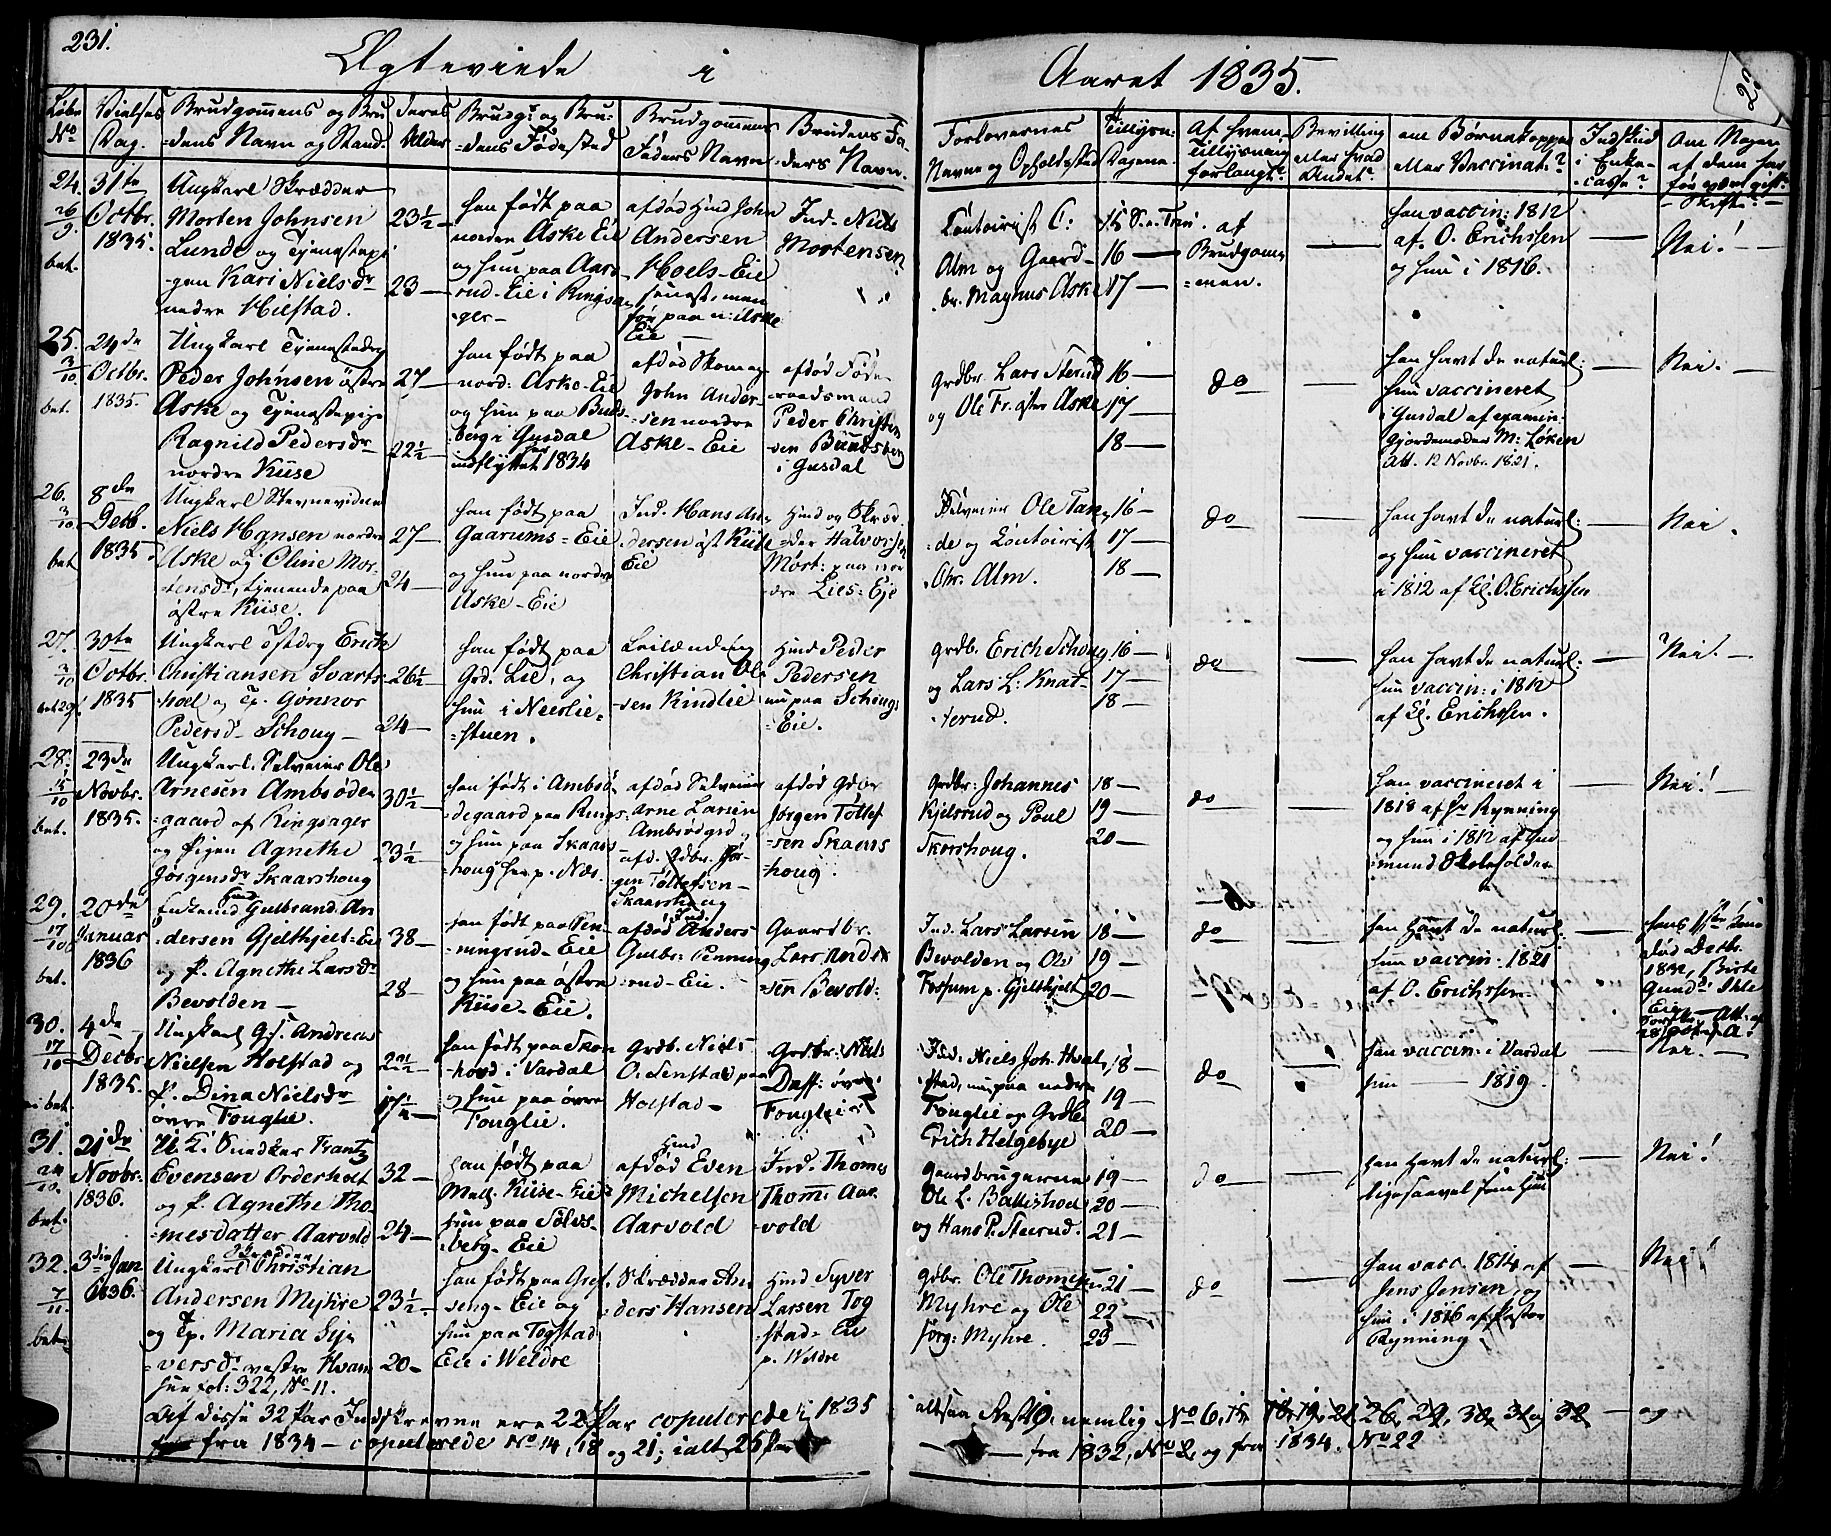 231.
Ægteviede i Aaret 1835.
Løbe No
Vielses Dag.
Brudgommens og Bru-
dens Navn og Stand.
deres Alder
Brudg: og Bru-
dens Fødested
Brudgommens
Faders Navn
Brudens Fa-
ders Navn.
Forlovernes
Navne og Opholdssted
Tillysn:
Dagene
Af hvem
Tillysning
forlangt.
Bevilling
eller hvad
Andet.
om Børnekopper
eller Vaccinat:?
Indskud
i Enke-
casse?
Om Nogen
af dem har
før været gift.
Skifte?
24.
26/9
bet.
31te
Octbr.
1835.
Ungkarl Skrædder
Morten Johnsen
Lunde og Tjenestepi-
gen Kari Nielsdr
nedre Hielstad.
23½
23
han født paa
nordre Aske Eie
og hun paa Aas-
rud-Eie i Ringsa-
ger
afdød Huusm John
Andersen
Moels-Eie
senest, men
før paa n: Aske
Eie
Ind. Niels
Mortensen
Contoirist C:
Alm og Gaard-
br. Magnus Aske
15 S. e. Trin.
16
17
af
Brudgom-
men.
han vaccin: 1812
af O. Erichsen
og hun i 1816.
Nei!
25.
3/10
bet.
24de
Octbr.
1835.
Ungkarl Tjenestedrg
Peder Johnsen østre
Aske og Tjenestepige
Ragnild Pedersdr
nordre Kiise
27
22½
han født paa
nord: Aske-Eie
og hun paa Buds-
berg i Gusdal
indflyttet 1834
afdød Skomag
John Ander-
sen nordre
Aske-Eie
afdød Føde-
raadsmand
Peder Christen
sen Budsberg
i Gusdal
Grdbr. Lars Sterud
og Ole Fr. østre Aske
16
17
18
do
han havt de naturl:
hun vaccineret
i Gusdal af examin.
Gjordemoder M: Løken
Att. 12 Novbr. 1821.
Nei.
26.
3/10
bet
8de
Decb.
1835
Ungkarl Stevnevidne
Niels Hansen nordre
Aske og Oline Mor-
tensdr, tjenende paa
østre Kiise.
27
24
han født paa
Gaarums-Eie
og hun paa nordre
Aske-Eie
Ind. Hans An-
dersen øst Kiise
Eie
Huusm og Skræd-
der Halvorsen
Mort: paa nor
dre Lies-Eje
Selveier Ole Tan-
de og Contoirist
Chr. Alm.
16
17
18
do
han havt de naturl:
og hun vaccineret
i 1812 af Kl. O. Erichsen
Nei.
27.
3/10
30te
Octbr.
1835
Ungkarl Tjstdrg Erich
Christiansen Svarts-
hoel og Tp. Gønnor
Pedersd. Schoug
26½
24
han født paa
Grd. Lie, og
hun i Neerlie-
stuen.
Leilænding
Christian Ol-
sen Kindlie
Huusm Peder
Pedersen
nu paa Schougs
Eie.
Grdb. Erich Schoug
og Lars L: Knat-
terud.
16
17
18
do
han havt de naturl:
hun vaccin: i 1812
af Kl. Erichsen.
Nei.
28.
15/10
bet.
23de
Novbr.
1835.
Ungkarl. Selveier Ole
Arnesen Ambsøde-
gaard af Ringsager
og Pigen Agnethe
Jørgensdr Skaarshoug
30½
23½
han født i Ambsø-
degaard paa Rings:
og hun paa Skaars
houg her p. Næs.
afdød Selveier
Arne Larsen
Ambsødgrd
afd. Gdbr. Jør-
gen Tollefsen
Skaarshoug
afdød Gdbr
Jørgen Tollef
sen Skaars
houg.
Grdbr. Johannes
Kjelsrud og Poul
Skorshoug.
18
19
20
do
han vaccineret i
1818 af Hr Rynning
og hun i 1812 af Gud
mund Skoleholder
Nei!
29.
17/10
bet.
20de
Januar
1836
Enkemd Gulbrand An
dersen Gjelthjelt-Eie
og P. Agnethe Larsdr
Bevolden
38
28
han født paa Pen-
ningrud-Eie
og hun paa østre
Kiise-Eie.
afdød Anders
Gulbr: Penning
rud-Eie.
Gaardbr.
Lars Ander
sen Bevold:
Ind. Lars Larsen
Bevolden og Ole
Fossum p. Gjelthjelt
18
19
20
do
han havt de naturl:
hun vaccin. 1821
af O. Erichsen
hans 1ste Kone
død Decbr.
1832, Birte
30.
17/10
bet.
4de
Decbr
1835.
Ungkarl Gs. Andreas
Nielsen Holstad og
P. Dina Nielsdr
øvre Fonglie.
17½
han født paa Skon
hovd i Vardal
og hun paa øvre
Fonglie.
Grdb. Niels
Odenstad paa
Holstad
Grdbr. Niels
Fonglie
Ind. Niels Joh. Hval
stad, nu paa nedre
Fonglie og Grdb
Erich Helgebye
18
19
20
do
han vaccin: i Vardal
hun 1819
Nei.
31.
24/10.
bet.
21de
Novbr.
1836.
U. K. Snedker Frantz
Evensen Orderholt
og P. Agnethe Tho-
mesdatter Aarvold
32
24
han født paa
Mell. Kiise-Eie
hun paa Sols-
berg-Eie
Huusm
afdød Even
Michelsen
Aarvold
Ind. Thomes
Thom: Aar
vold
Gaardbrugerne
Ole L. Ballishoel
og Hans P. Steerud.
19
20
21
do
han havt de naturl:
ligesaavel som hun
Nei!
32.
7/11
bet
3die Jan
1836.
Ungkarl Christian
Andersen Myhre
og Tp. Maria Sy-
versdr vestre Hvam
hun fol: 322, No 11.
23½
20
han født paa Gref-
seng-Eie og
hun paa Togstad
Eie i Weldre
Skrædder An-
ders Hansen
Huusm Syver
Larsen Tog
stad-Eie
p. Weldre
Gdbr. Ole Thomesen
Myhre og Ole
Jørg: Myhre.
21
22
23
do
han vacc. 1814 af
Jens Jensen, og
hun i 1816 af Pastor
Rynning
Nei!
Af disse 32 Par Indskrevne ere 22 Par copulerede i 1835 altsaa Rest 10, nemlig No 6, 15, 18, 19, 21 26, 29, 30, 31 og 32 og
fra 1834 copulerede No 14, 18 og 21; ialt 25 Par fra 1832, No 2, og fra 1834. No 22